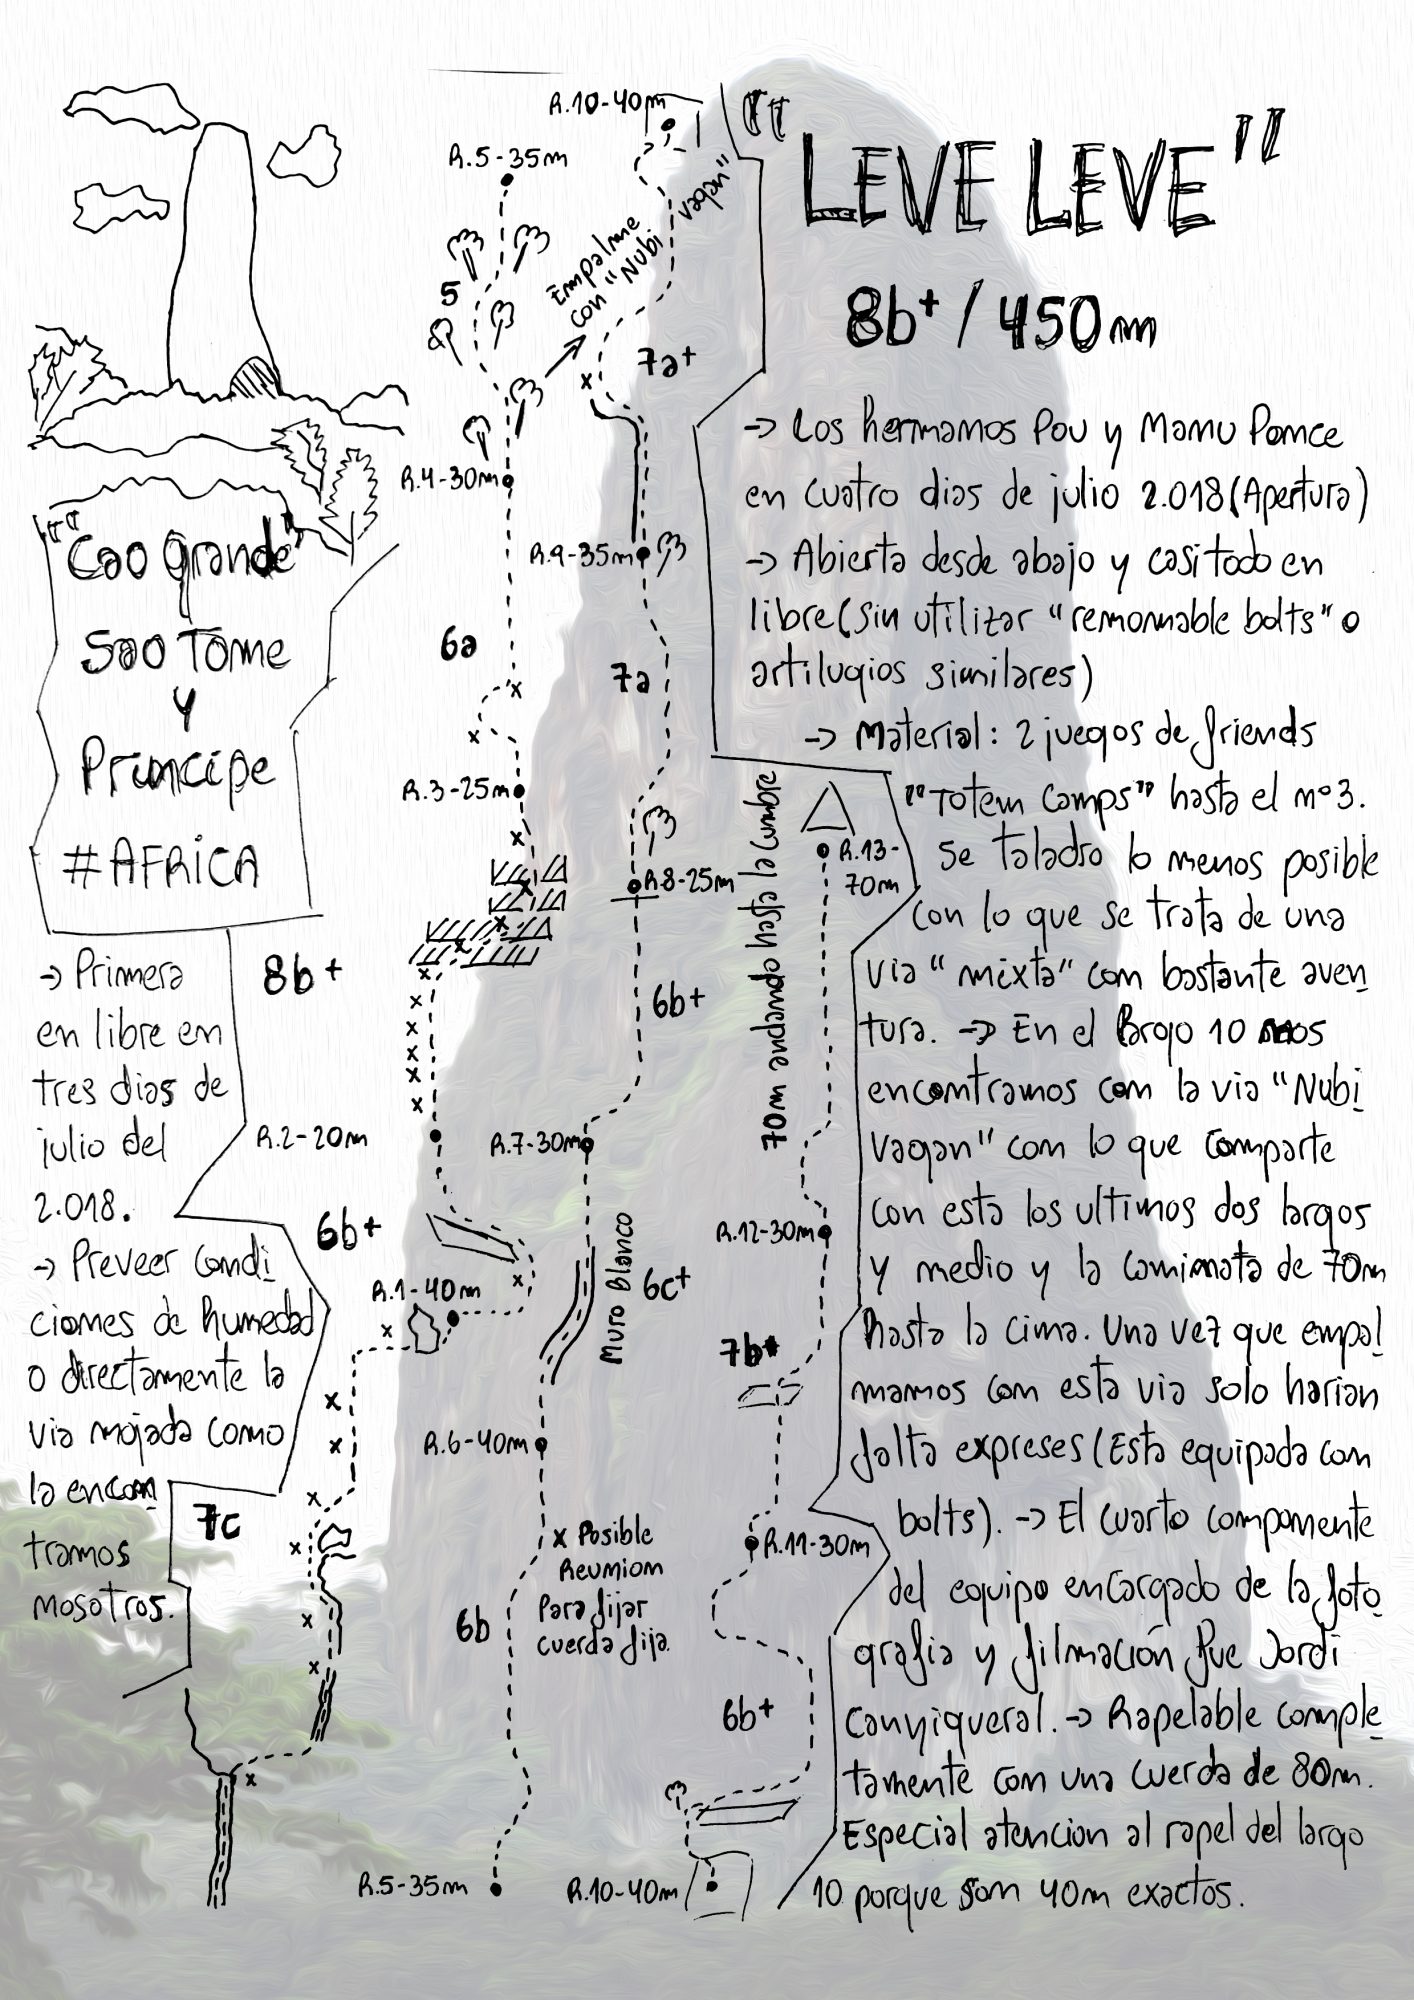 "LEVE LEVE"
8b+ / 450m
→ Los hermanos Pou y Manu Ponce
en cuatro dias de julio 2.018 (Apertura)
→ Abierta desde abajo y casi todo en
libre (sin utilizar "remonnable bolts" o
artilugios similares)
→ Material: 2 juegos de friends
"Totem Camps" hasta el nº3.
Se taladro lo menos posible
con lo que se trata de una
via "mixta" con bastante aven
tura. → En el largo 10 nos
encontramos con la via "Nubi
vagan" con lo que comparte
con esta los ultimos dos largos
y medio y la caminata de 70m
hasta la cima. Una vez que empal
mamos con esta via solo harian
falta expreses (Esta equipada con
bolts). → El cuarto componente
del equipo encargado de la foto
grafia y filmación fue Jordi
Canyigueral. → Rapelable comple
tamente con una cuerda de 80m.
Especial atencion al rapel del largo
10 porque son 40m exactos.
"Cao grande"
Sao Tome
y
Principe
#AFRICA
→ Primera
en libre en
tres dias de
julio del
2.018.
→ Preveer condi
ciones de humedad
o directamente la
via mojada como
la encon
tramos
nosotros.
7c
R.1-40m
6b+
R.2-20m
8b+
R.3-25m
6a
R.4-30m
5
R.5-35m
Empalme
con "Nubi
vagan"
R.5-35m
6b
x Posible
Reunion
Para fijar
cuerda fija.
R.6-40m
Muro Blanco
6c+
R.7-30m
6b+
R.8-25m
7a
R.9-35m
7a+
R.10-40m
R.10-40m
6b+
R.11-30m
7b+
R.12-30m
70m andando hasta la cumbre
R.13-
70m